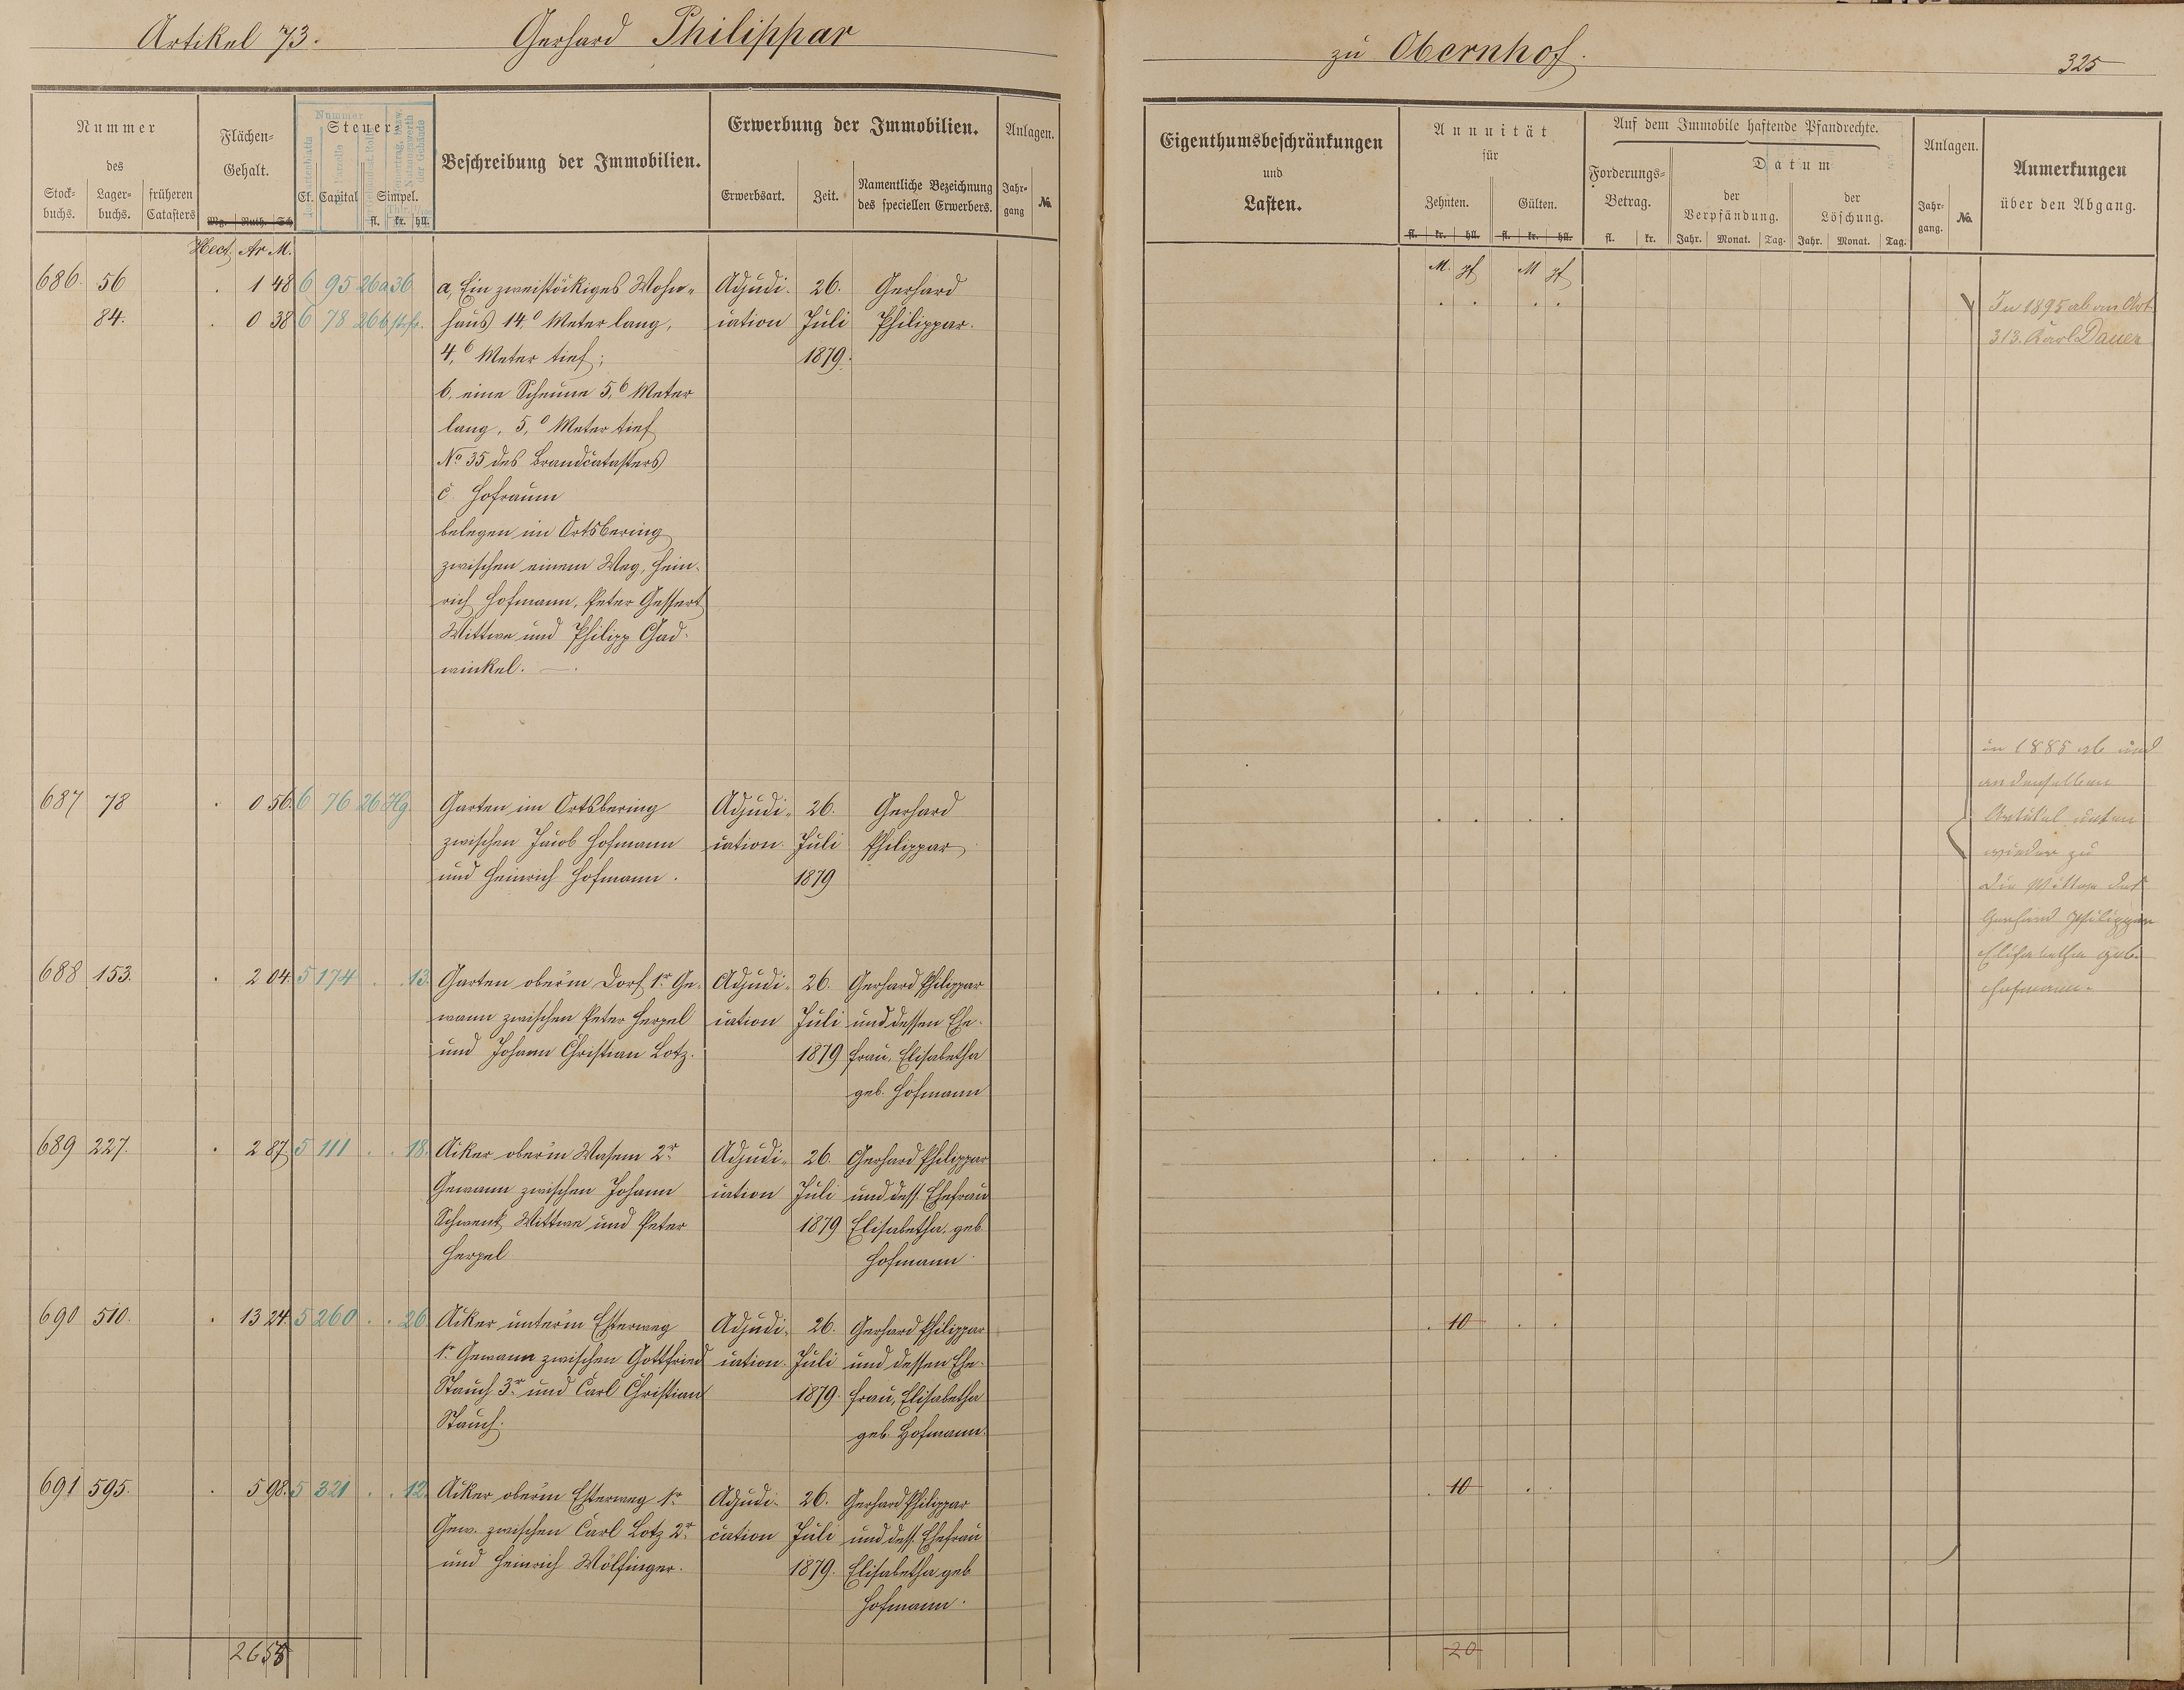 Artikel 73. Gerhard Philippar
zu Obernhof. 325
Nummer
des
Stock-
buchs.
Lager-
buchs.
früheren
Catasters
Flächen-
Gehalt.
Mg. Ruth. Sch
Hect. Ar M.
Nummer
Steuer-
Cl. Capital Simpel.
fl. kr. hll.
Beschreibung der Immobilien.
Erwerbung der Immobilien.
Erwerbsart. Zeit.
Namentliche Bezeichnung
des speciellen Erwerbers.
Anlagen.
Jahr-
gang No.
Eigenthumsbeschränkungen
und
Lasten.
Annuität
für
Zehnten. Gülten.
fl. kr. hll. fl. kr. hll.
M. pf M pf
Auf dem Immobile haftende Pfandrechte.
Forderungs-
Betrag.
fl. kr.
Datum
der
Verpfändung.
der
Löschung.
Jahr. Monat. Tag. Jahr. Monat. Tag.
Anlagen.
Jahr-
gang. No.
Anmerkungen
über den Abgang.
686. 56 . 1 48 6 95 26 a 36 a, Ein zweistöckiges Wohn- Adjudi- 26. Gerhard
84. . 0 38 6 78 26 b haus 14,0 Meter lang, cation Juli Philippar.
4,6 Meter tief; 1879.
b, eine Scheune 5,6 Meter
lang, 5,0 Meter tief
No 35 des Brandcatasters
c. Hofraum
belegen im Ortsbering
zwischen einem Weg, Hein-
rich Hofmann, Peter Gessert
Wittwe und Philipp Gad-
winkel. —.
In 1895 ab an Art.
313. Karl Dauer
687 78 . 0 56. 6 76 26 Hg. Garten im Ortsbering Adjudi- 26. Gerhard
zwischen Jacob Hofmann cation. Juli Philippar
und Heinrich Hofmann. 1879
in 1885 ab und
an denselben
Artikel unten
wieder zu
die Wittwe des
Gerhard Philippar
Elisabetha geb.
Hofmann.
688 153. . 2 04. 5 174 . . 13. Garten ober'm Dorf 1r Ge- Adjudi- 26. Gerhard Philippar
wann zwischen Peter Herpel cation Juli und dessen Ehe-
und Johann Christian Lotz. 1879 frau, Elisabetha
geb. Hofmann
689 227. . 2 87 5 111 . . 18. Acker ober'm Wasem 2r Adjudi- 26. Gerhard Philippar
Gewann zwischen Johann cation Juli und dess. Ehefrau
Schwenk Wittwe und Peter 1879 Elisabetha, geb.
Herpel Hofmann.
690 510. . 13 24. 5 260 . . 26. Acker unter'm Esterweg Adjudi- 26. Gerhard Philippar . 10 . .
1r Gewann zwischen Gottfried cation. Juli und dessen Ehe-
Stauch 3r und Carl Christian 1879. frau, Elisabetha
Stauch. geb. Hofmann.
691 595. . 5 98. 5 321 . . 12. Acker ober'm Esterweg 1r Adjudi- 26. Gerhard Philippar . 10 . .
Gew. zwischen Carl Lotz 2r cation Juli und dess. Ehefrau
und Heinrich Wölfinger. 1879. Elisabetha geb
Hofmann.
20